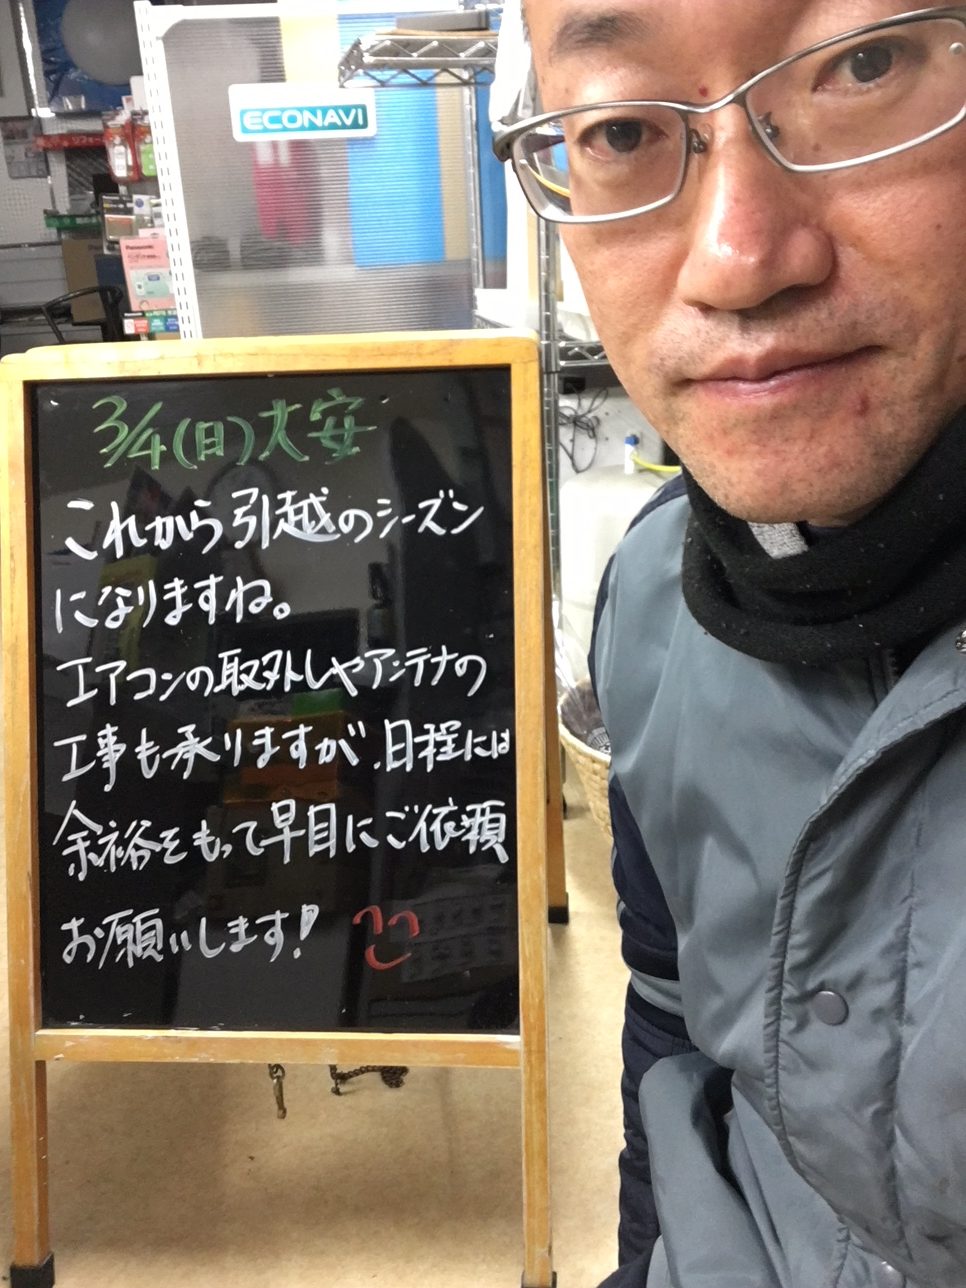 ECONAVI
Panasonic
3/4(日)大安
これから引越のシーズン
になりますね。
エアコンの取外しやアンテナの
工事も承りますが、日程には
余裕をもって早目にご依頼
お願いします!